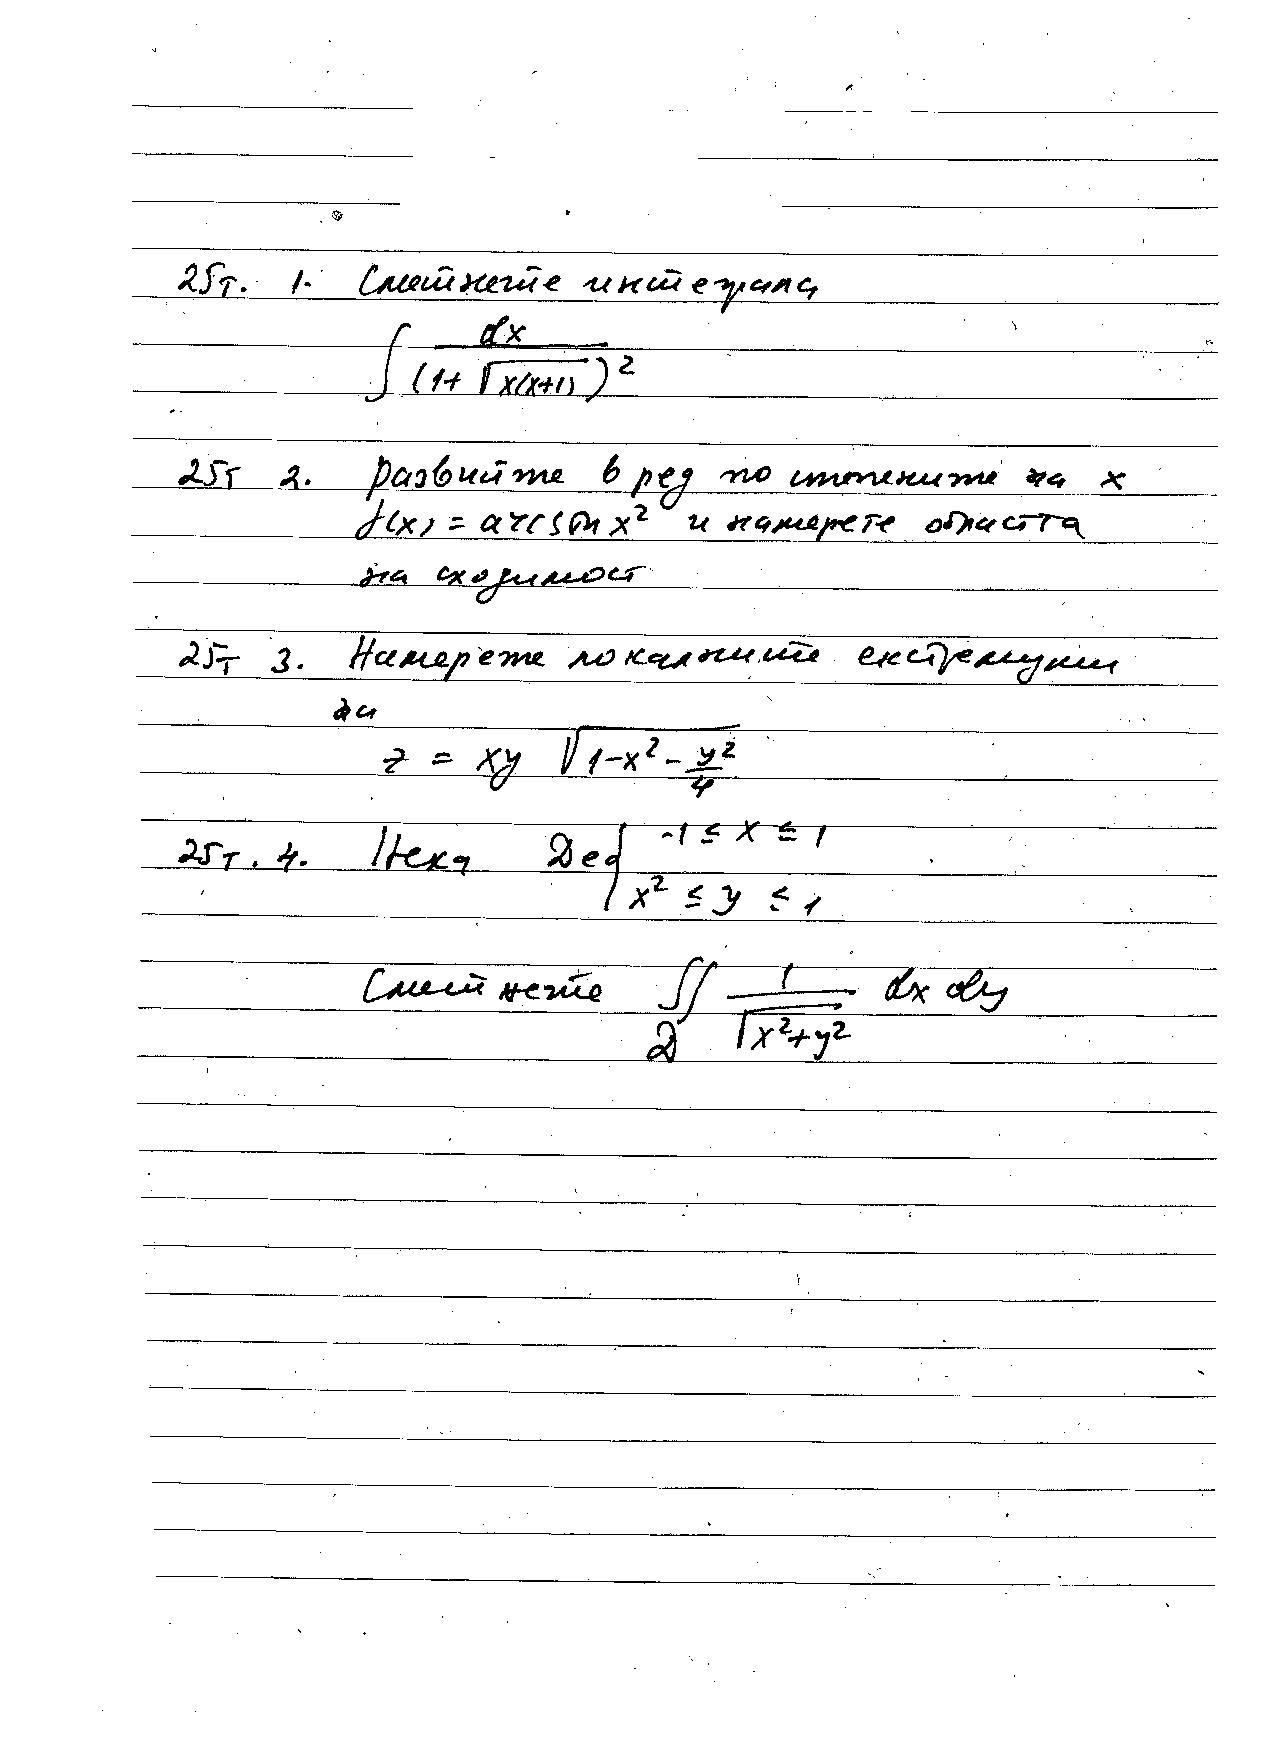 25т. 1. Сметнете интеграла
∫ dx / (1+√x(x+1))²
25т 2. Развийте в ред по степените на x
f(x) = arcsin x² и намерете областта
на сходимост
25т 3. Намерете локалните екстремуми
на
z = xy √1-x²-y²/4
25т. 4. Нека D e { -1 ≤ x ≤ 1
x² ≤ y ≤ 1
Сметнете ∬_D 1/√x²+y² dx dy